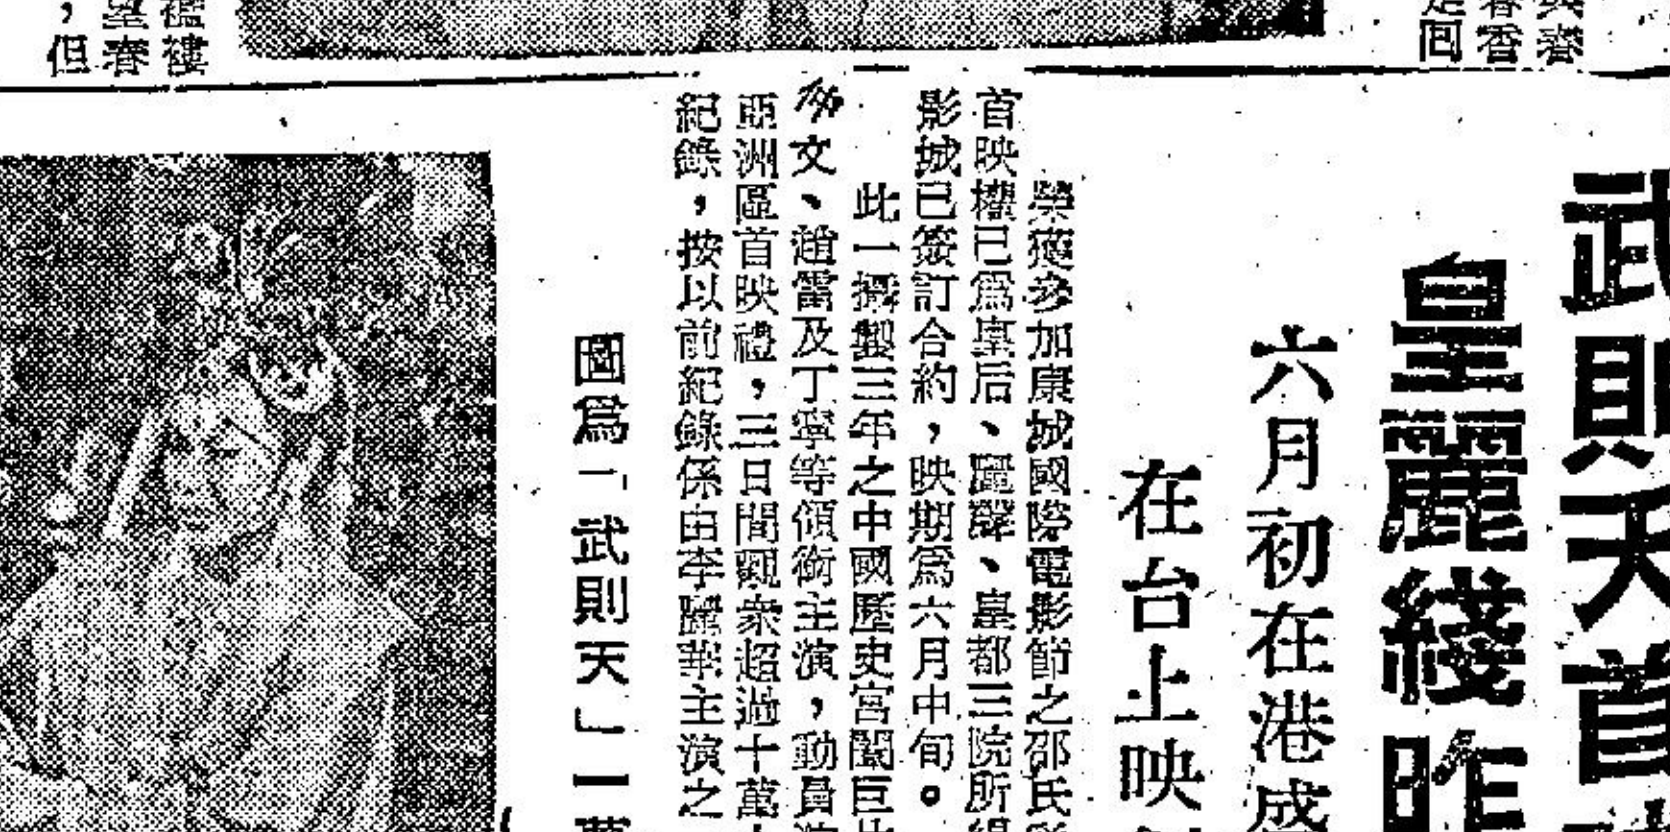 與春
春香
是回
武則天首
皇麗綫昨
六月初在港盛
在台上映
榮獲參加康城國際電影節之邵氏
首映權已爲皇后、麗聲、皇都三院所
影城已簽訂合約,映期爲六月中旬。
此一攝製三年之中國歷史宮闈巨片
文、趙雷及丁寧等領銜主演,動員
亞洲區首映禮,三日間觀衆超過十萬
紀錄,按以前紀錄係由李麗華主演之
圖爲「武則天」一
襤褸
望春
,但